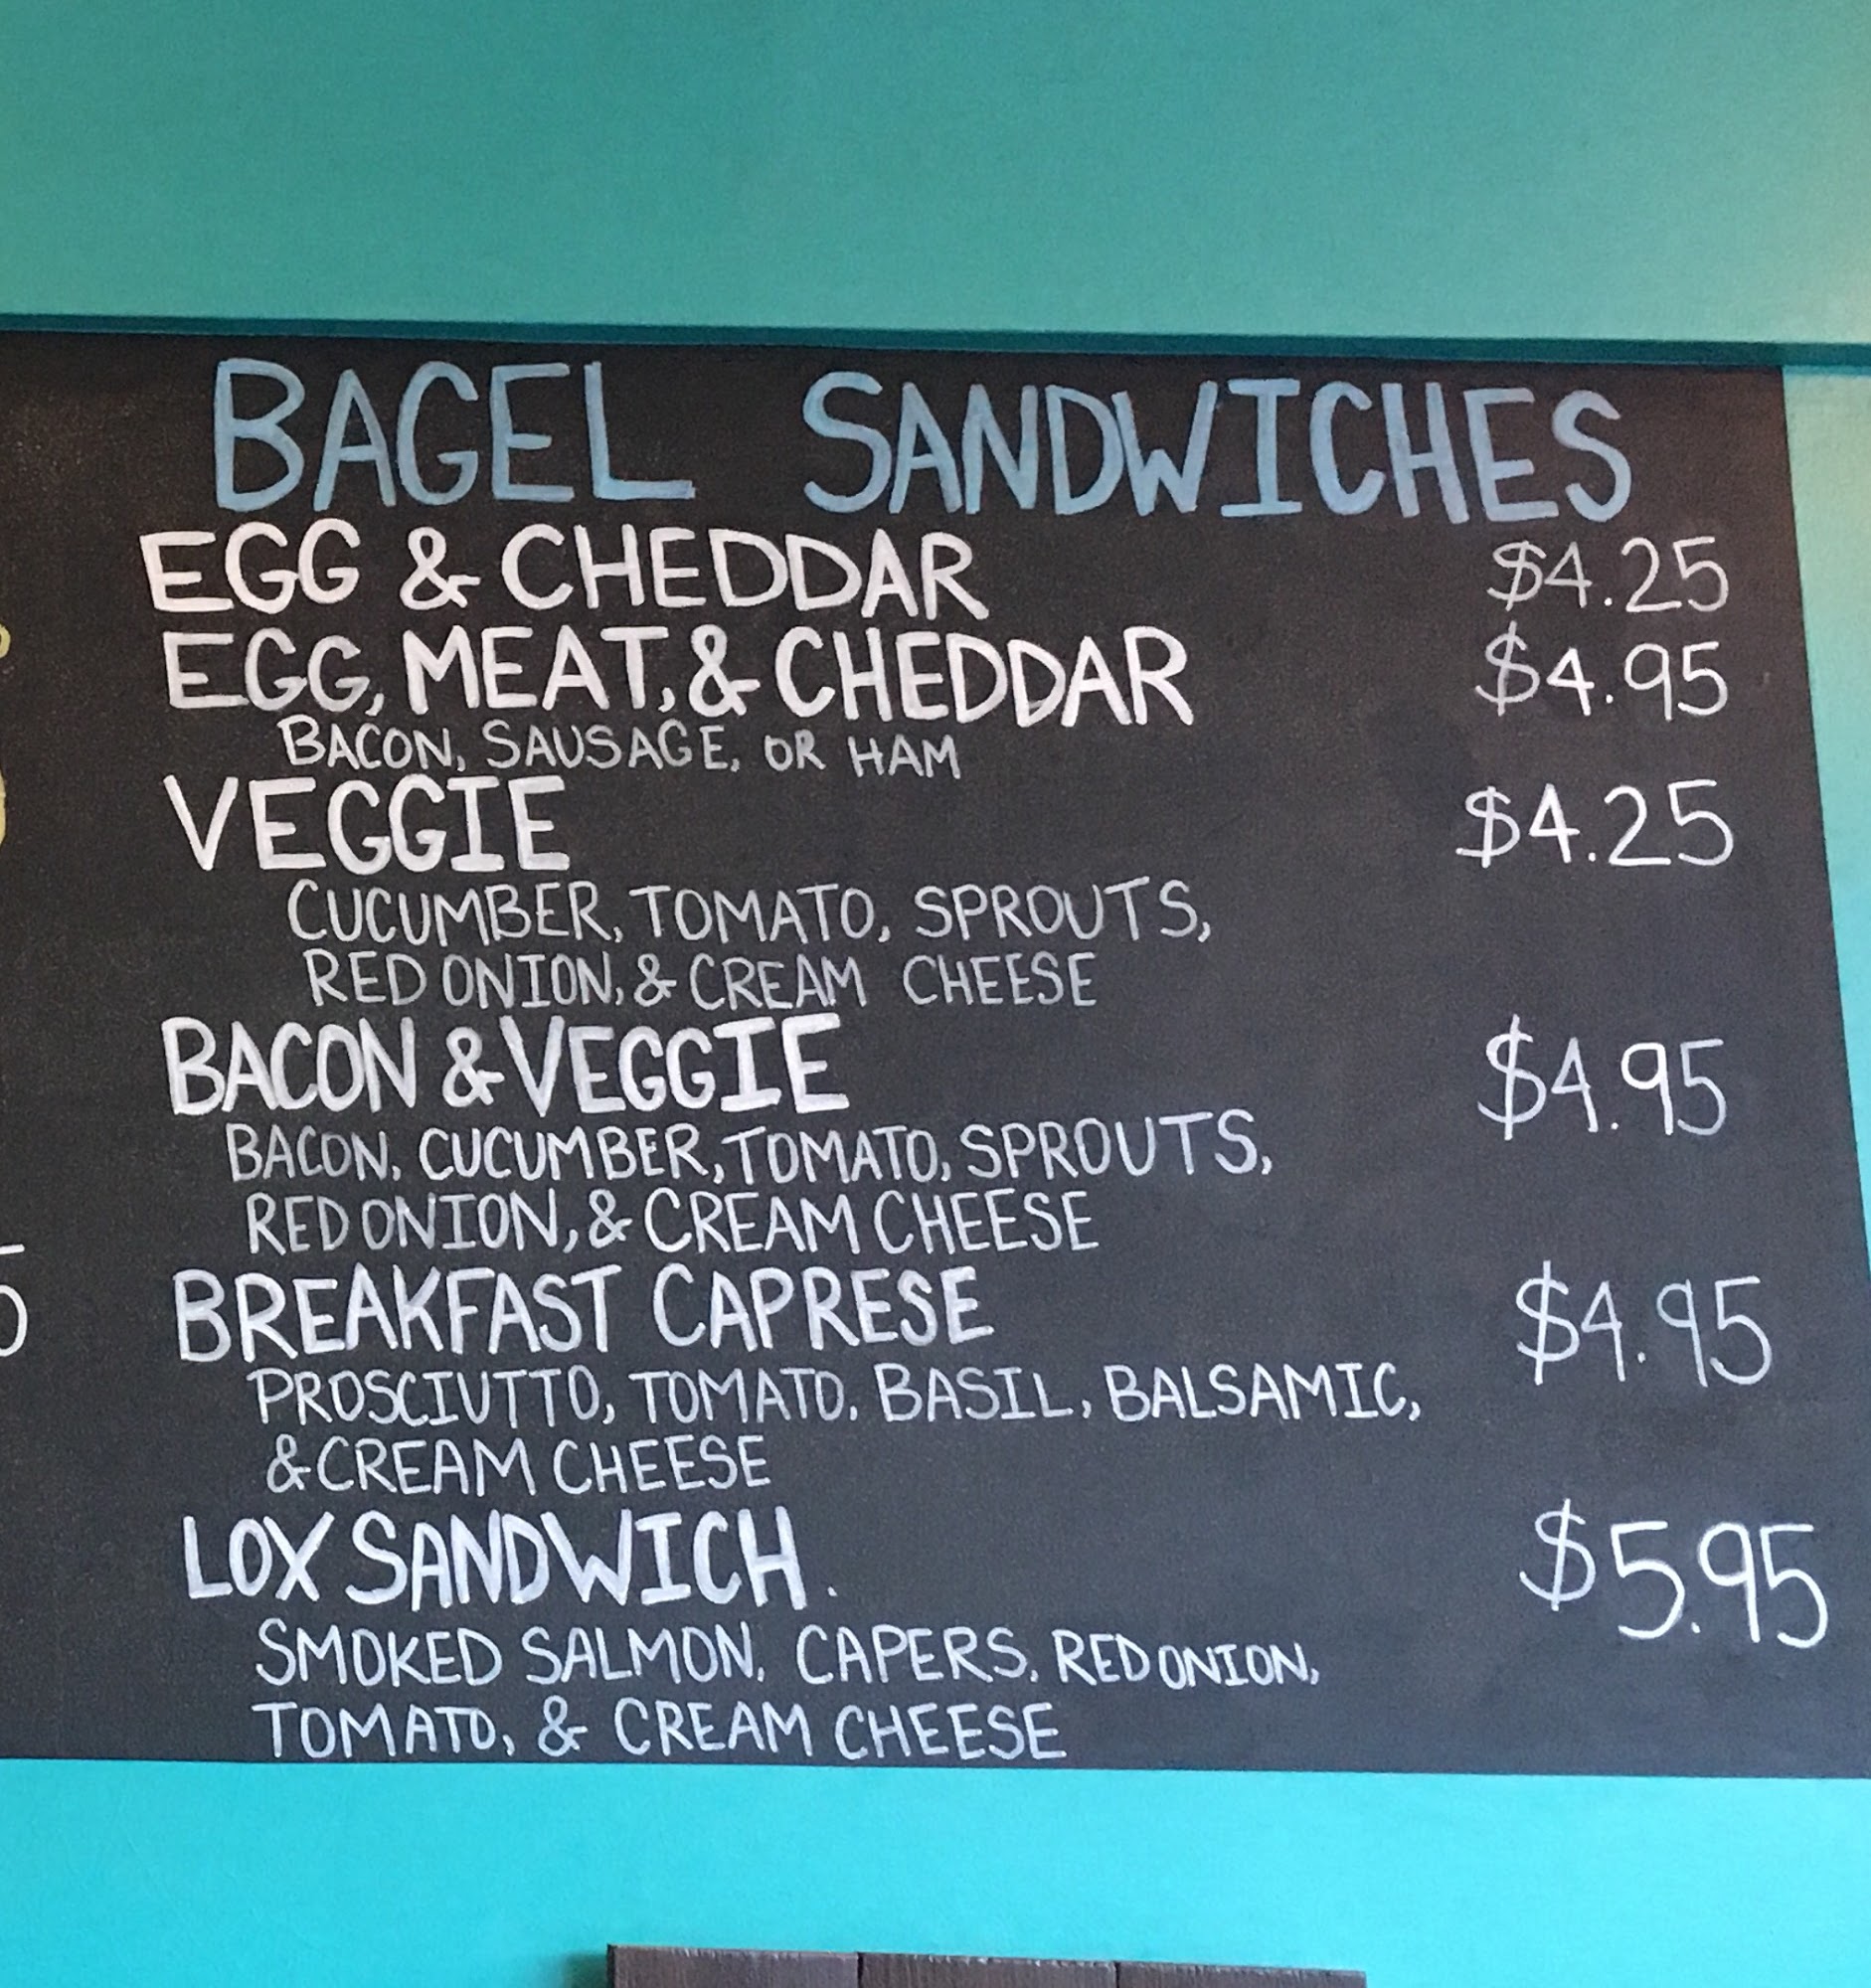 BAGEL SANDWICHES
EGG & CHEDDAR $4.25
EGG, MEAT, & CHEDDAR $4.95
BACON, SAUSAGE, OR HAM
VEGGIE $4.25
CUCUMBER, TOMATO, SPROUTS,
RED ONION, & CREAM CHEESE
BACON & VEGGIE $4.95
BACON, CUCUMBER, TOMATO, SPROUTS,
RED ONION, & CREAM CHEESE
BREAKFAST CAPRESE $4.95
PROSCIUTTO, TOMATO, BASIL, BALSAMIC,
& CREAM CHEESE
LOX SANDWICH. $5.95
SMOKED SALMON, CAPERS, RED ONION,
TOMATO, & CREAM CHEESE